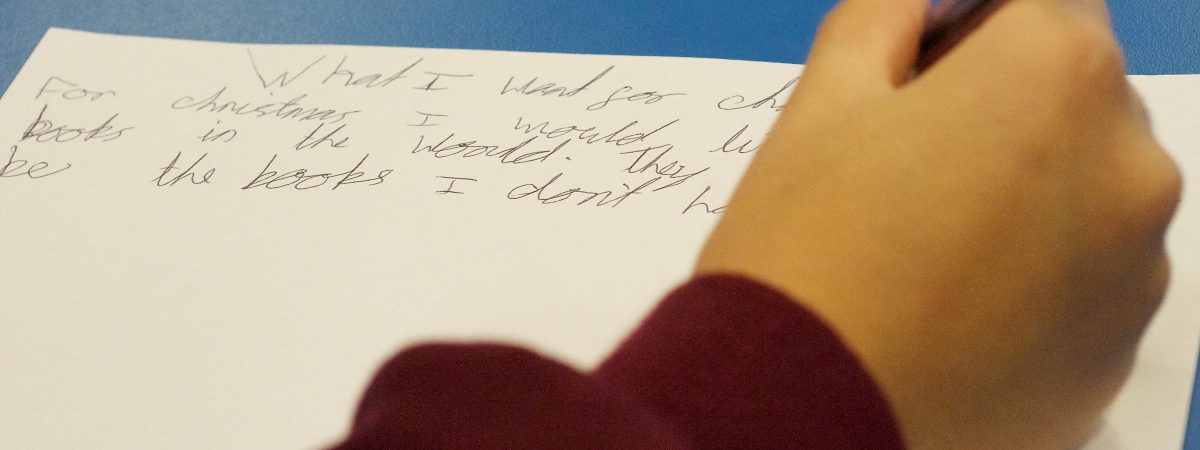 What I want for ch
For christmas I would li
books in the woould. They
be the books I don't ha